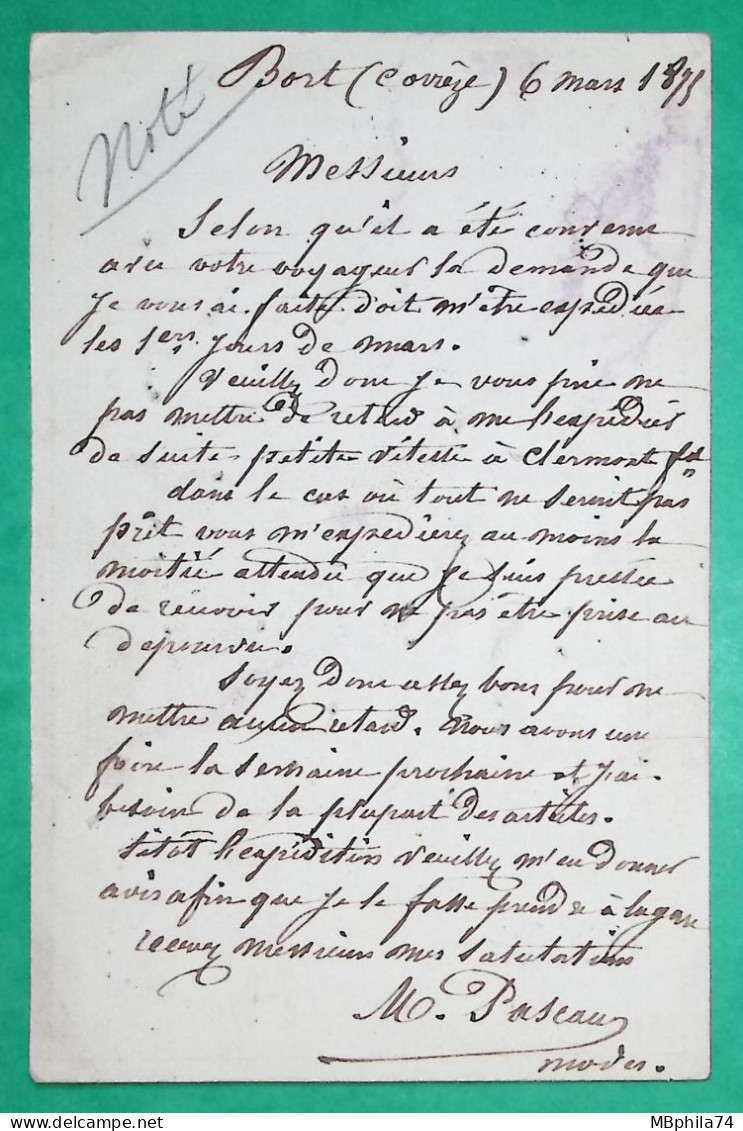 Bort (Corrèze) 6 mars 1875
Noté
Messieurs
Selon qu'il a été convenu
avec votre voyageur la demande que
je vous ai faite doit m'être expédiée
les 1ers jours de mars.
Veuillez donc je vous prie ne
pas mettre de retard à me l'expédier
de suite petite vitesse à Clermont fd
dans le cas où tout ne serait pas
prêt vous m'expédierez au moins la
moitié attendu que je suis pressée
de recevoir pour ne pas être prise au
depourvu.
Soyez donc assez bons pour ne
mettre aucun retard. Nous avons une
foire la semaine prochaine et j'ai
besoin de la plupart des articles.
sitôt l'expédition veuillez m'en donner
avis afin que je le fasse prendre à la gare
recevez Messieurs mes salutations
M. Paseau
modes.
MBphila74